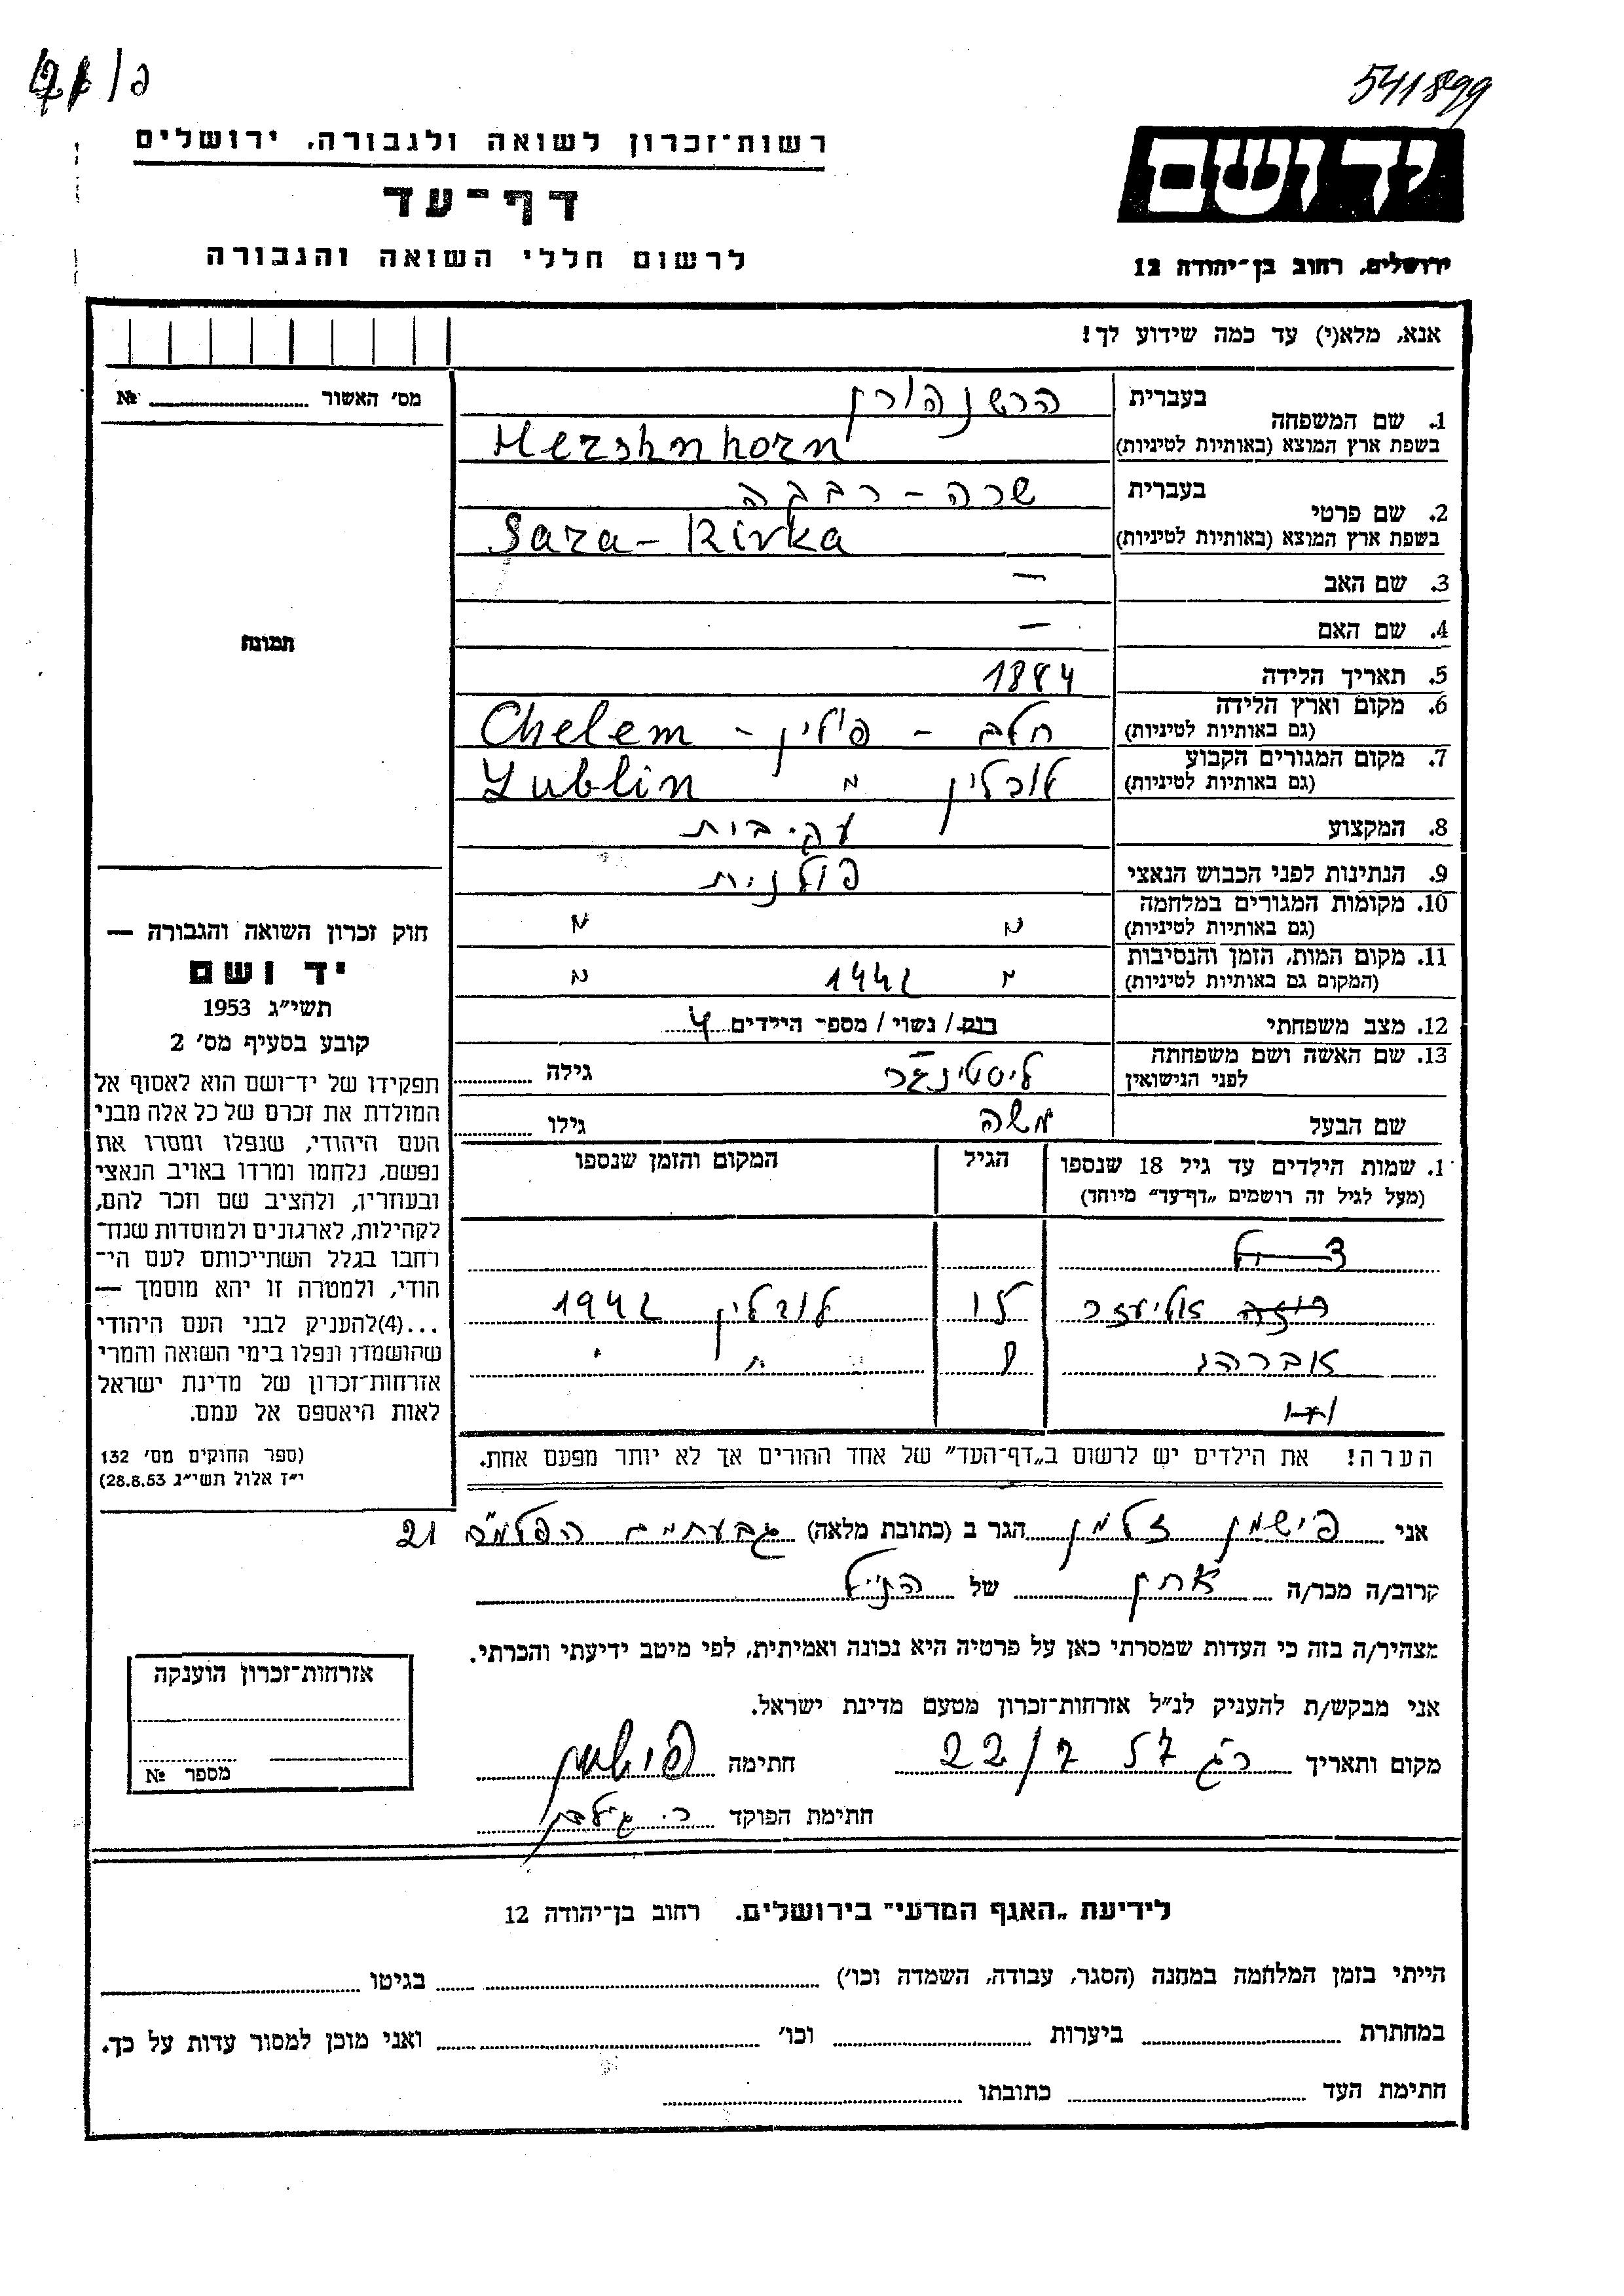 541899
יד ושם
ירושלים, רחוב בן־יהודה 12
רשות־זכרון לשואה ולגבורה, ירושלים
דף־עד
לרשום חללי השואה והגבורה
אנא, מלא(י) עד כמה שידוע לך!
מס׳ האשור № 
1. שם המשפחה בעברית הרשנהורן
בשפת ארץ המוצא (באותיות לטיניות) Hershnhorn
2. שם פרטי בעברית שרה - רבקה
בשפת ארץ המוצא (באותיות לטיניות) Sara - Rivka
3. שם האב —
4. שם האם —
5. תאריך הלידה 1884
6. מקום וארץ הלידה
(גם באותיות לטיניות) חלם - פולין - Chelem
7. מקום המגורים הקבוע
(גם באותיות לטיניות) לובלין " Lublin
8. המקצוע עק. בית
9. הנתינות לפני הכבוש הנאצי פולנית
10. מקומות המגורים במלחמה
(גם באותיות לטיניות) " "
11. מקום המות, הזמן והנסיבות
(המקום גם באותיות לטיניות) " 1942 "
12. מצב משפחתי רווק / נשוי / מספר הילדים 4
13. שם האשה ושם משפחתה
לפני הנישואין גילה
שם הבעל משה גילו
1. שמות הילדים עד גיל 18 שנספו הגיל המקום והזמן שנספו
(מעל לגיל זה רושמים „דף־עד” מיוחד)
אליעזר לובלין 1942
אברהם " "
הערה! את הילדים יש לרשום ב„דף־העד” של אחד ההורים אך לא יותר מפעם אחת.
תמונה
חוק זכרון השואה והגבורה —
יד ושם
תשי״ג 1953
קובע בסעיף מס׳ 2
תפקידו של יד־ושם הוא לאסוף אל
המולדת את זכרם של כל אלה מבני
העם היהודי, שנפלו ומסרו את
נפשם, נלחמו ומרדו באויב הנאצי
ובעוזריו, ולהציב שם וזכר להם,
לקהילות, לארגונים ולמוסדות שנח־
רחבו בגלל השתייכותם לעם הי־
הודי, ולמטרה זו יהא מוסמך —
...(4)להעניק לבני העם היהודי
שהושמדו ונפלו בימי השואה והמרי
אזרחות־זכרון של מדינת ישראל
לאות היאספם אל עמם.
(ספר החוקים מס׳ 132
י״ז אלול תשי״ג 28.8.53)
אני פישמן זלמן הגר ב (כתובת מלאה) גבעתיים הפלמ״ח 21
קרוב/ה מכר/ה חתן של הנ״ל
מצהיר/ה בזה כי העדות שמסרתי כאן על פרטיה היא נכונה ואמיתית, לפי מיטב ידיעתי והכרתי.
אני מבקש/ת להעניק לנ״ל אזרחות־זכרון מטעם מדינת ישראל.
מקום ותאריך ר״ג 57 22/7 חתימה פישמן
חתימת הפוקד
אזרחות־זכרון הוענקה
מספר №
לידיעת „האגף המדעי” בירושלים. רחוב בן־יהודה 12
הייתי בזמן המלחמה במחנה (הסגר, עבודה, השמדה וכו׳) בגיטו
במחתרת ביערות וכו׳ ואני מוכן למסור עדות על כך.
חתימת העד כתובתו